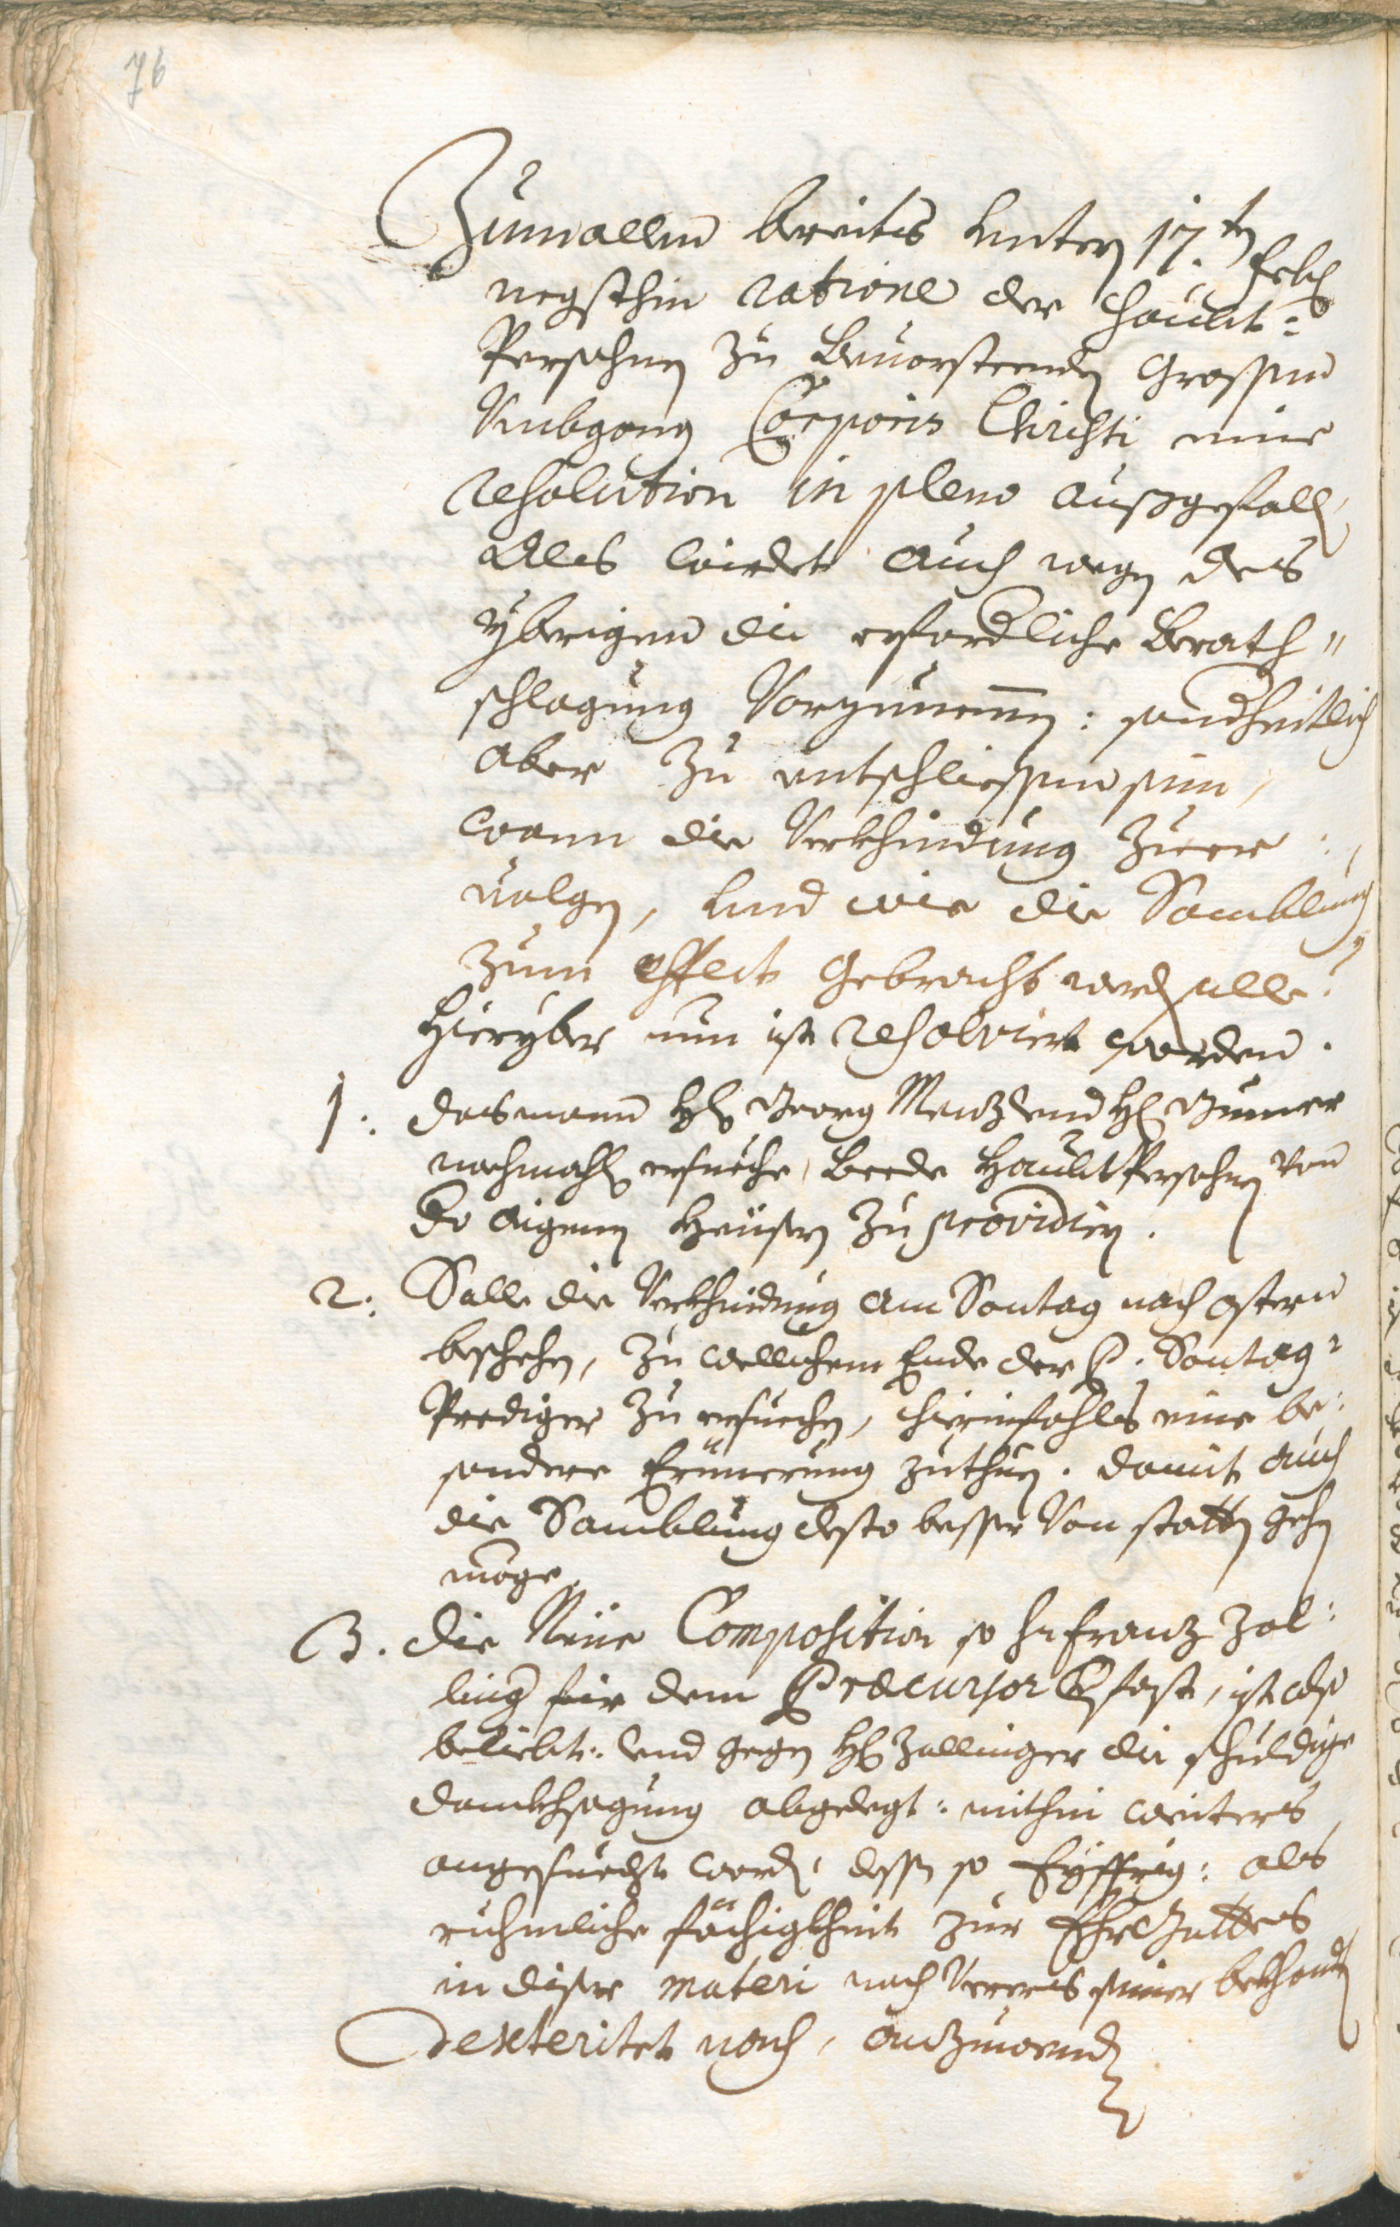 76
Zumallen bereits unterm 17.ten Feb.
negsthin ratione der Haubt=
Persohnen zu bevorsteenden Grossen
Umbgang Corporis Christi eine
resolution in pleno außgefallen,
Als wirdet auch wegen des
yberigen die erforderliche Berath"
schlagung vorzunemmen: sonderheitlich
aber zu entschliessen sein,
wann die Verkhindung zuer=
volgen, und wie die Samblung
zum effect gebracht werden solle?
Hieryber nun ist resolviert worden.
1. das mann H. Georg Menz und H. Gumer
nochmahls ersueche, beede Haubt Persohnen von
dero aignen Heüsern zu providiern.
2. Solle die Verkhindung am Sontag nach Ostern
beschehen, zu welchem Ende der P. Sontag=
Prediger zu ersuechen, hierinfahls eine be=
sondere Erinnerung zuthuen. damit auch
die Samblung desto besser von statten gehen
möge.
3. die Neüe Composition so H. Franz Zal=
linger für dem Præcursor verfast, ist alß
beliebt: und gegen H. Zallinger die schuldige
danckhsagung abgelegt: mithin weiters
angesuecht worden, dessen so Eyffrig: als
ruhmliche fächigkheit zur Ehre Gottes
in diser materi nach seiner bekhanten
dexteritet noch, anzuwenden